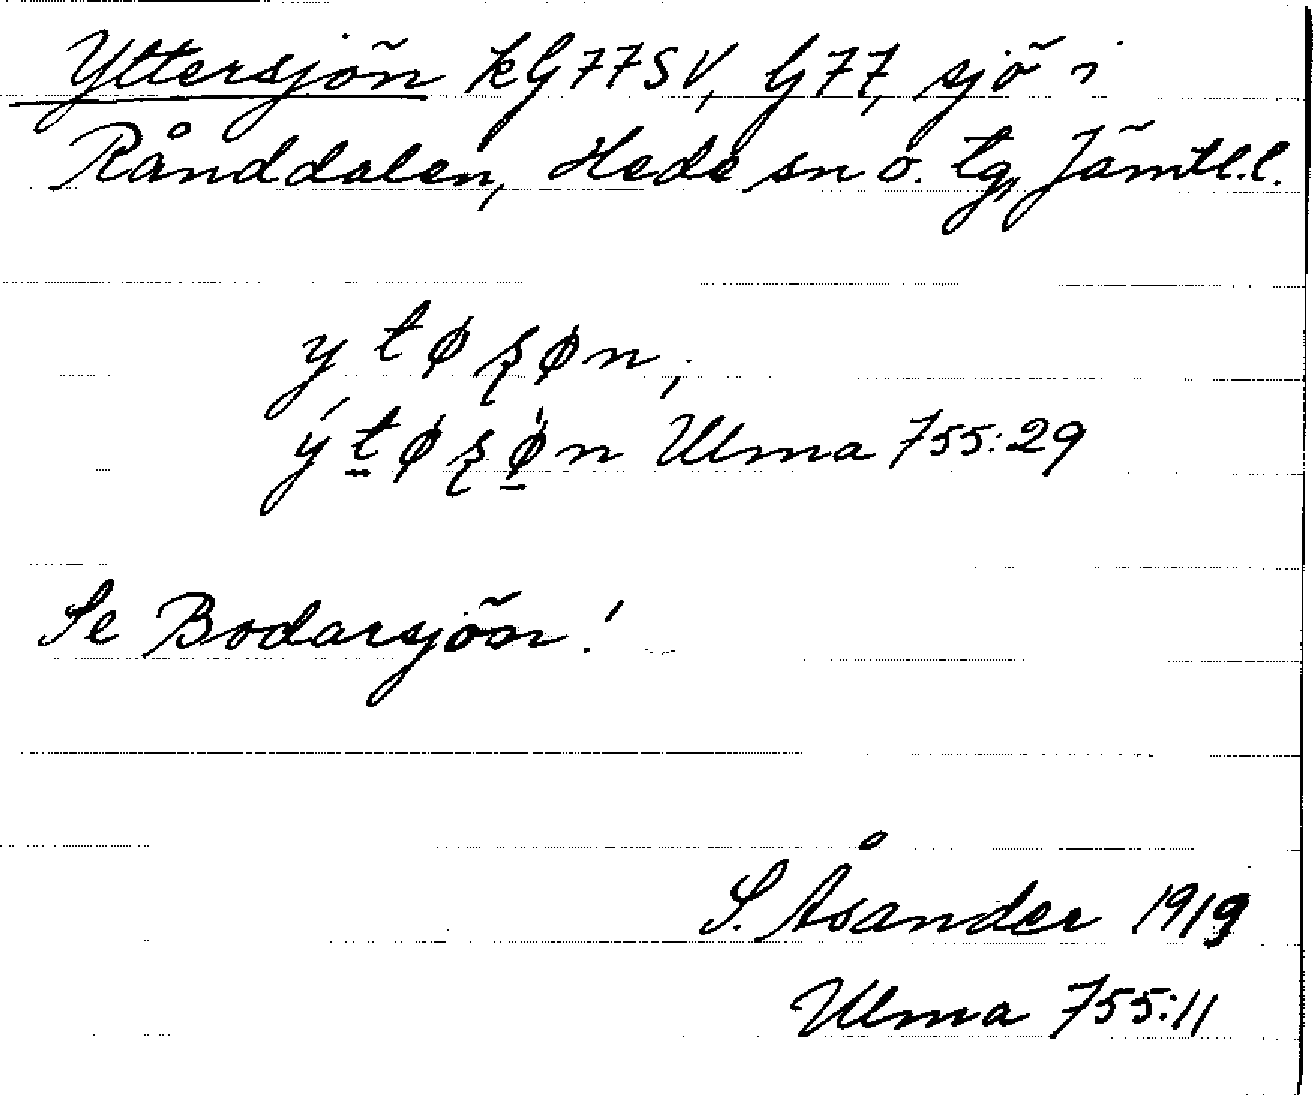 Yttersjön kG77SV, G77, sjö i
Rånddalen, Hede sn o. tg, Jämtl.l.
ytøʂøn,
ýt̰øʂǿ̠n Ulma 755:29
Se Bodarsjön!
S. Åsander 1919
Ulma 755:11